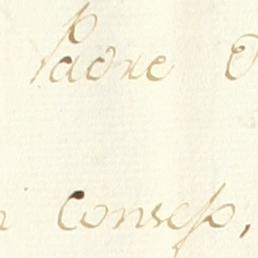 Padre
consejo,